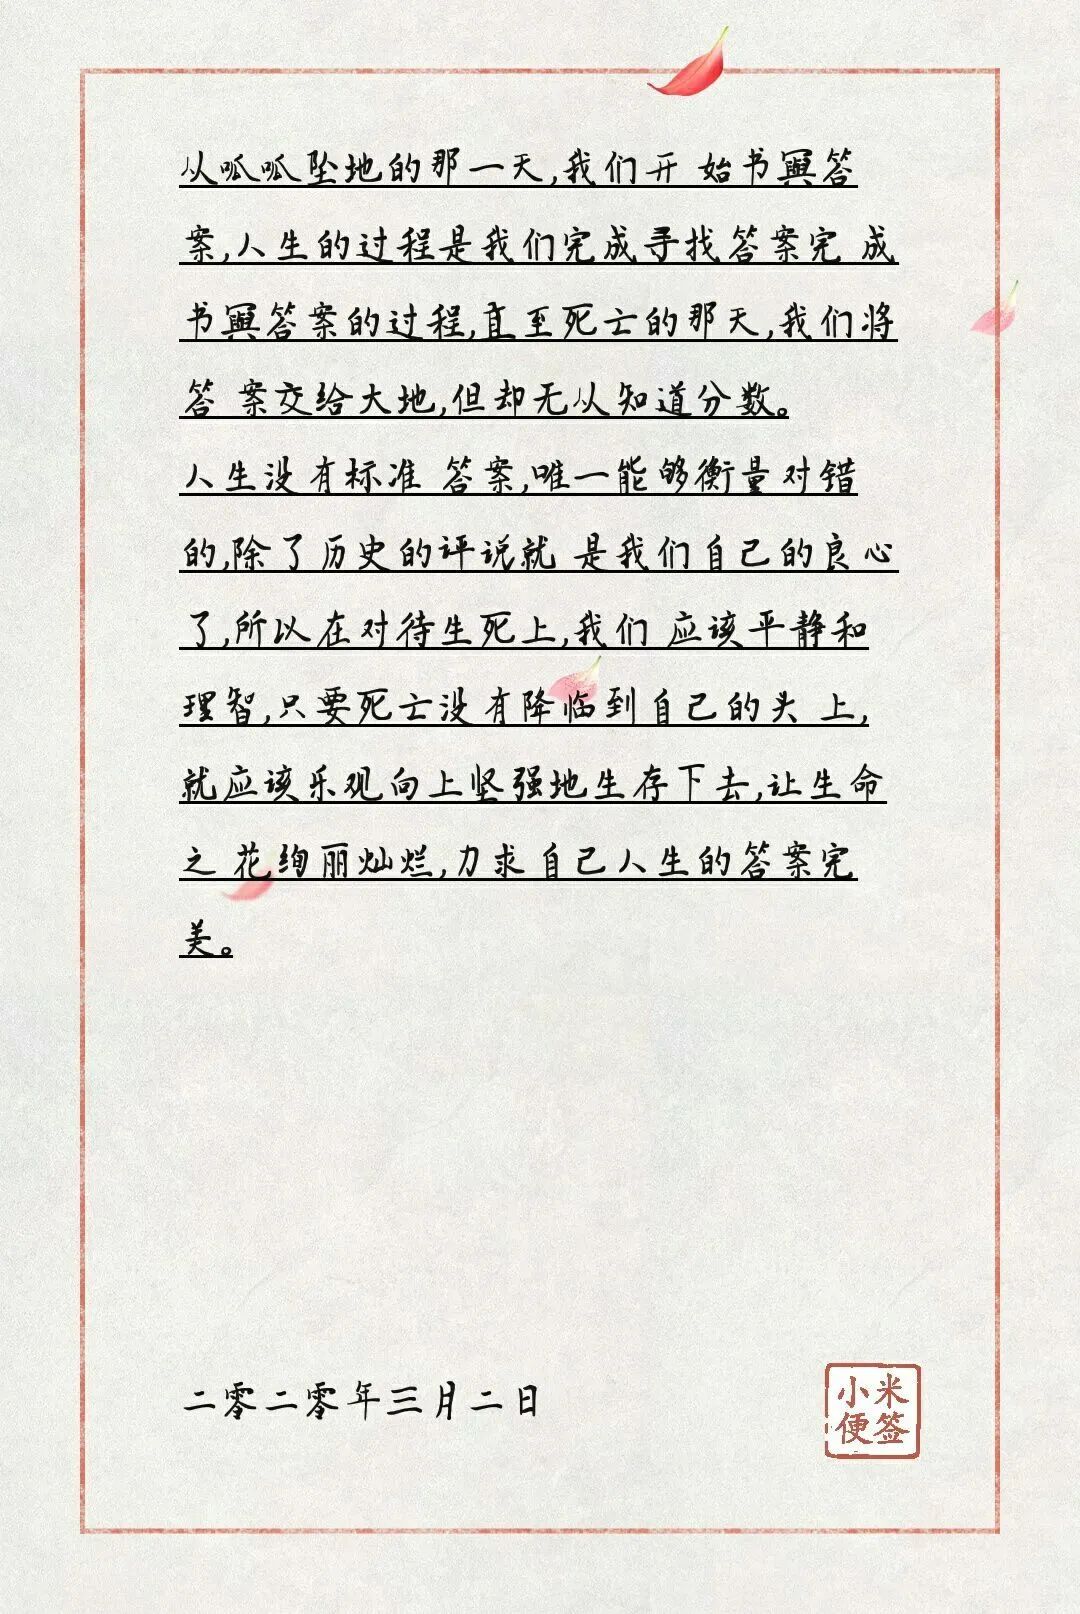 从呱呱坠地的那一天,我们开 始书写答
案,人生的过程是我们完成寻找答案完 成
书写答案的过程,直至死亡的那天,我们将
答 案交给大地,但却无从知道分数。
人生没有标准 答案,唯一能够衡量对错
的,除了历史的评说就 是我们自己的良心
了,所以在对待生死上,我们 应该平静和
理智,只要死亡没有降临到自己的头 上,
就应该乐观向上坚强地生存下去,让生命
之 花绚丽灿烂,力求自己人生的答案完
美。
二零二零年三月二日
小米
便签